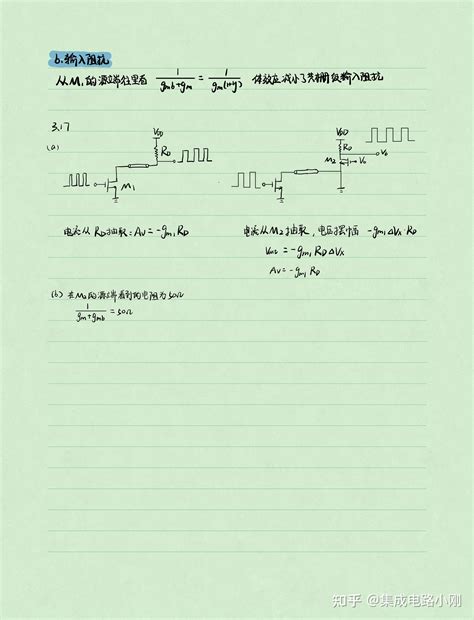 6.输入阻抗
从M1的源端往里看 1/(gmb+gm) = 1/(gm(1+η)) 体效应减小了共栅级输入阻抗
3.17
(a)
VDD
RD
M1
VDD
RD
M2
Vo
Vb
电流从RD抽取：Av=-gm1RD
电流从M2抽取，电压摆幅 -gm1ΔVx·RD
= -gm1 RD ΔVx
Av = -gm1 RD
(b) 在M2的源端看到的电阻为50Ω
1/(gm+gmb) = 50Ω
知乎 @集成电路小刚